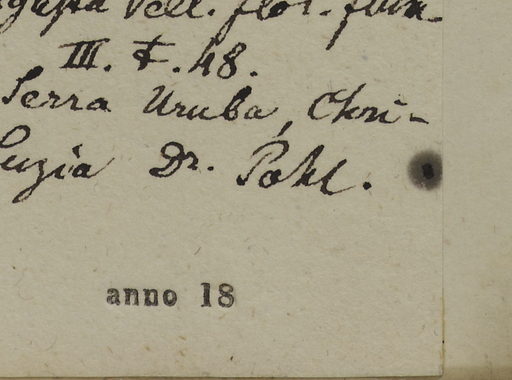 Vell. flor. flum-
III. t. 48.
Serra Uruba, Chri-
Luzia Dr. Pohl.
anno 18